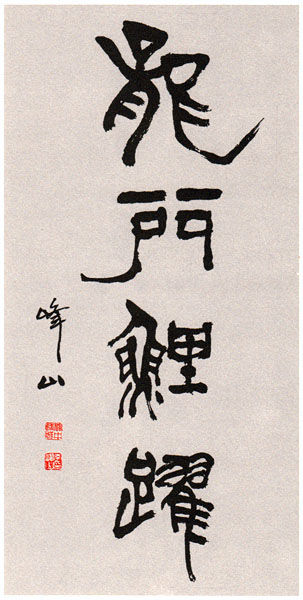 龍門鯉躍
峰山